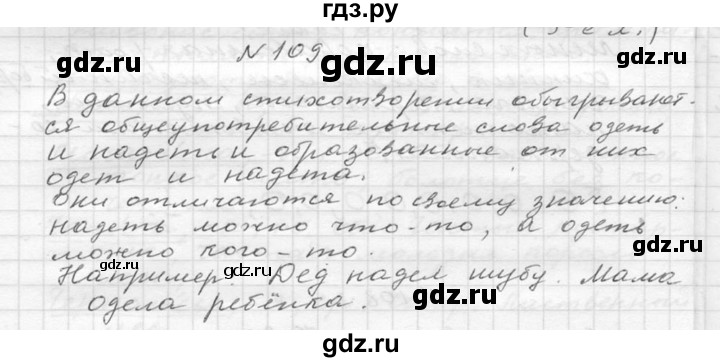 гдз.ру
№109
В данном стихотворении обыгрывают-
ся общеупотребительные слова одеть
и надеть и образованные от них
одет и надета.
Они отличаются по своему значению:
надеть можно что-то, а одеть
можно кого-то.
Например: Дед надел шубу. Мама
одела ребёнка.
gdz.ru
gdz.ru
gdz.ru
gdz.ru
gdz.ru
gdz.ru
gdz.ru
gdz.ru
gdz.ru